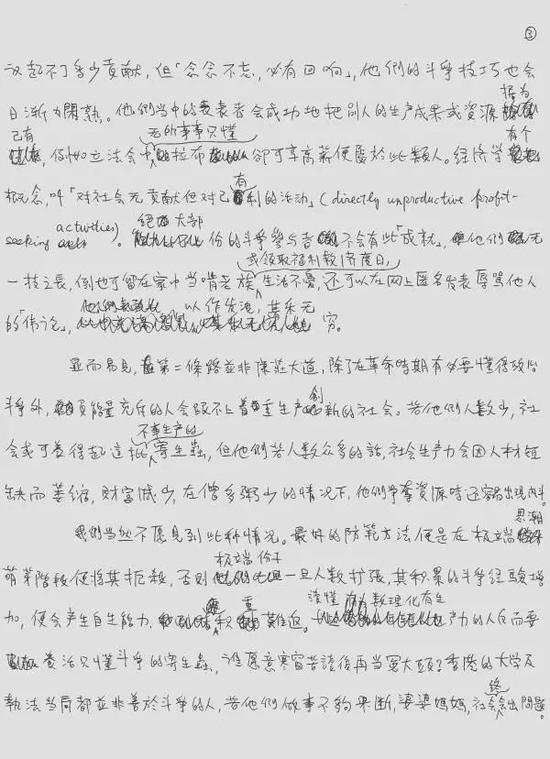 ③
说起不了多少貢献，但「念念不忘，必有回响」，他們的斗爭技巧也会
日漸為閑熟。他們当中的表表者会成功地把別人的生产成果或資源 据为
己有，例如立法会中无所事事只懂拉布 卻可享高薪便屬於此類人。經济学有个
概念，叫「对社会无貢献但对己有利的活动」(directly unproductive profit-
seeking activities)。絕大部份的斗爭參与者不会有此「成就」，他們无
一技之長，倒也可留在家中当啃老族或領取福利救濟度日，生活不憂，还可以在网上匿名发表辱罵他人
的「偉论」，以作发洩，其樂无窮。
显而易見，第二條路並非康莊大道，除了在革命時期有必要懂得政治
斗爭外，負能量充斥的人会跟不上着重生产創新的社会。若他們人数少，社
会或可養得起這批不事生产的寄生蟲，但他們若人数众多的話，社会生产力会因人材短
缺而萎縮，財富減少，在僧多粥少的情況下，他們爭奪資源時还容易出現內斗。
我們当然不愿見到此种情況。最好的防範方法便是在极端思潮
萌芽階段便將其扼殺，否則极端份子一旦人数扩張，其积累的斗爭經驗增
加，便会产生自生能力，积重难返。讀懂数理化有生产力的人反而要
養活只懂斗爭的寄生蟲，谁愿意寒窗苦讀後再当冤大頭？香港的大学及
執法当局都並非善於斗爭的人，若他們做事不夠果断，婆婆媽媽，社会終会出問題。